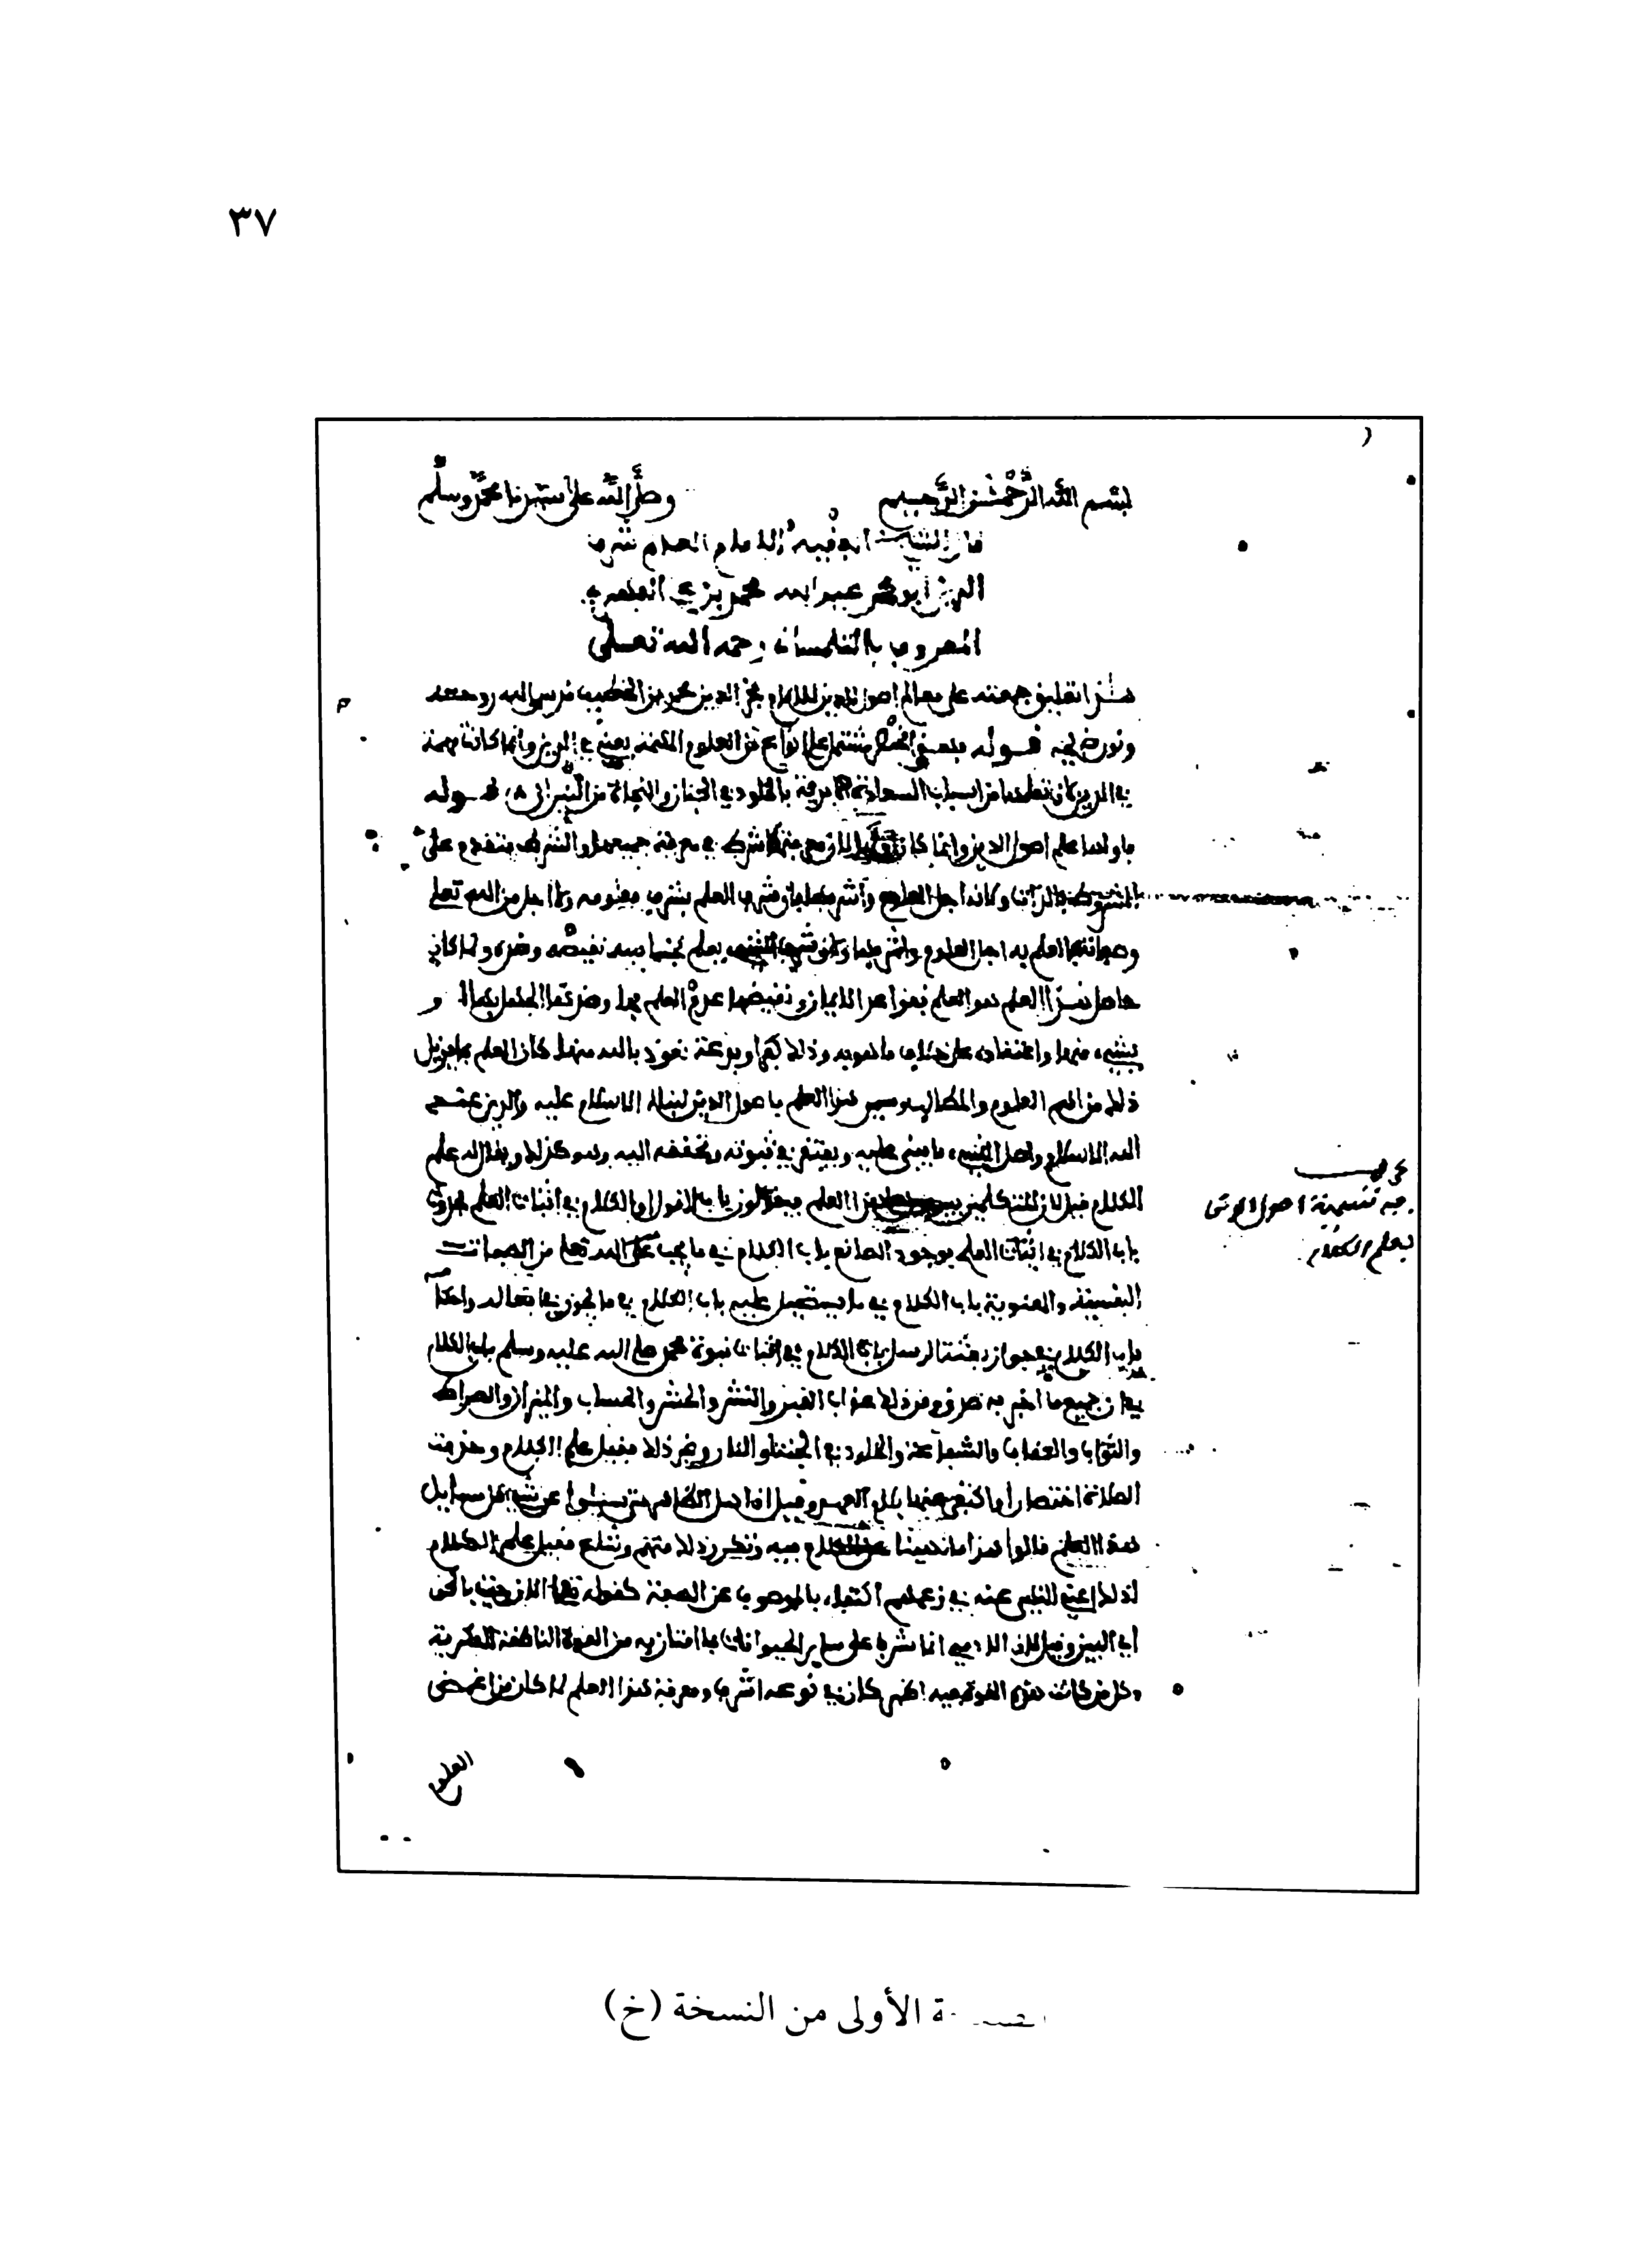 ٣٧
بسم الله الرحمن الرحيم وصلى الله على سيدنا محمد وسلم
قال الشيخ الفقيه الامام العلام شرف
الدين ابو محمد عبد الله محمد بن علي الفهري
المعروف بالتلمساني رحمه الله تعلى
هذا تعليق جمعته على معالم اصول الدين للامام فخر الدين محمد بن الخطيب قدس الله روحه
ونور ضريحه قوله هذا مختصر يشتمل على انواع من العلوم المهمة يعني في الدين وانما كانت مهمة
في الدين لان تعلمها من اسباب السعادة الابدية بالخلود في الجنان والنجاة من النيران قوله
فاولها علم اصول الدين وانما كان شرط في معرفة جميعها والشرط يتقدم على
المشروط بالذات وكان اجل العلوم واشرفها لان شرف العلم بشرف معلومه ولا اجل من الله تعلى
وصفاته فالعلم به اجل العلوم واشرفها شرف الشيء يعلم نقيضه وضده ولما كان
حاصل هذا العلم هو العلم بقواعد الايمان ونقيضها عدم العلم بها وضدها الجهل بها او
بشيء منها واعتقاده على خلاف ما هو به وذلك كفر او بدعة نعوذ بالله منها كان العلم بما يزيل
ذلك من اهم العلوم والمطالب وسمي هذا العلم باصول الدين لبناء الاسلام عليه والدين عند
الله الاسلام واصل الشيء ما يبنى عليه ويفتقر في ثبوته وتحققه اليه وهو كذلك ويقال له علم
الكلام قيل لان المتكلمين هذا العلم فيقولون باب القول او الكلام في اثبات العلم
باب الكلام في اثبات العلم بوجود الصانع باب الكلام في ما يجب لله تعلى من الصفات
النفسية والمعنوية باب الكلام في ما يستحيل عليه باب الكلام في ما يجوز في افعاله واحكامه
باب الكلام في جواز بعثة الرسل باب الكلام في اثبات نبوة محمد صلى الله عليه وسلم باب الكلام
في ان جميع ما اخبر به صدق من ذلك عذاب القبر والنشر والحشر والحساب والميزان والصراط
والثواب والعقاب والشفاعة والخلود في الجنة والنار وغير ذلك فقيل علم الكلام وحذفت
الصلات اختصارا واكتفي عنها بلام العهد وقيل ان اهل الظاهر متى سئلوا عن شيء من مسايل
هذا العلم قالوا هذا ما نهينا عن الكلام فيه وتكرر ذلك منهم وشاع فقيل علم الكلام
لذلك اعني المنهي عنه في زعمهم اكتفاء بالموصوف عن الصفة كقوله تعلى الان جئت بالحق
اي البين وقيل لان الادمي انما شرف على ساير الحيوانات بما امتاز به من القوة الناطقة الفكرية
وكل من كانت هذه القوة فيه اظهر كان في نوعه اشرف ومعرفة هذا العلم لما كان من اغمض
العلوم
فيه تسمية اصول الدين
بعلم الكلام
ة الأولى من النسخة (خ)